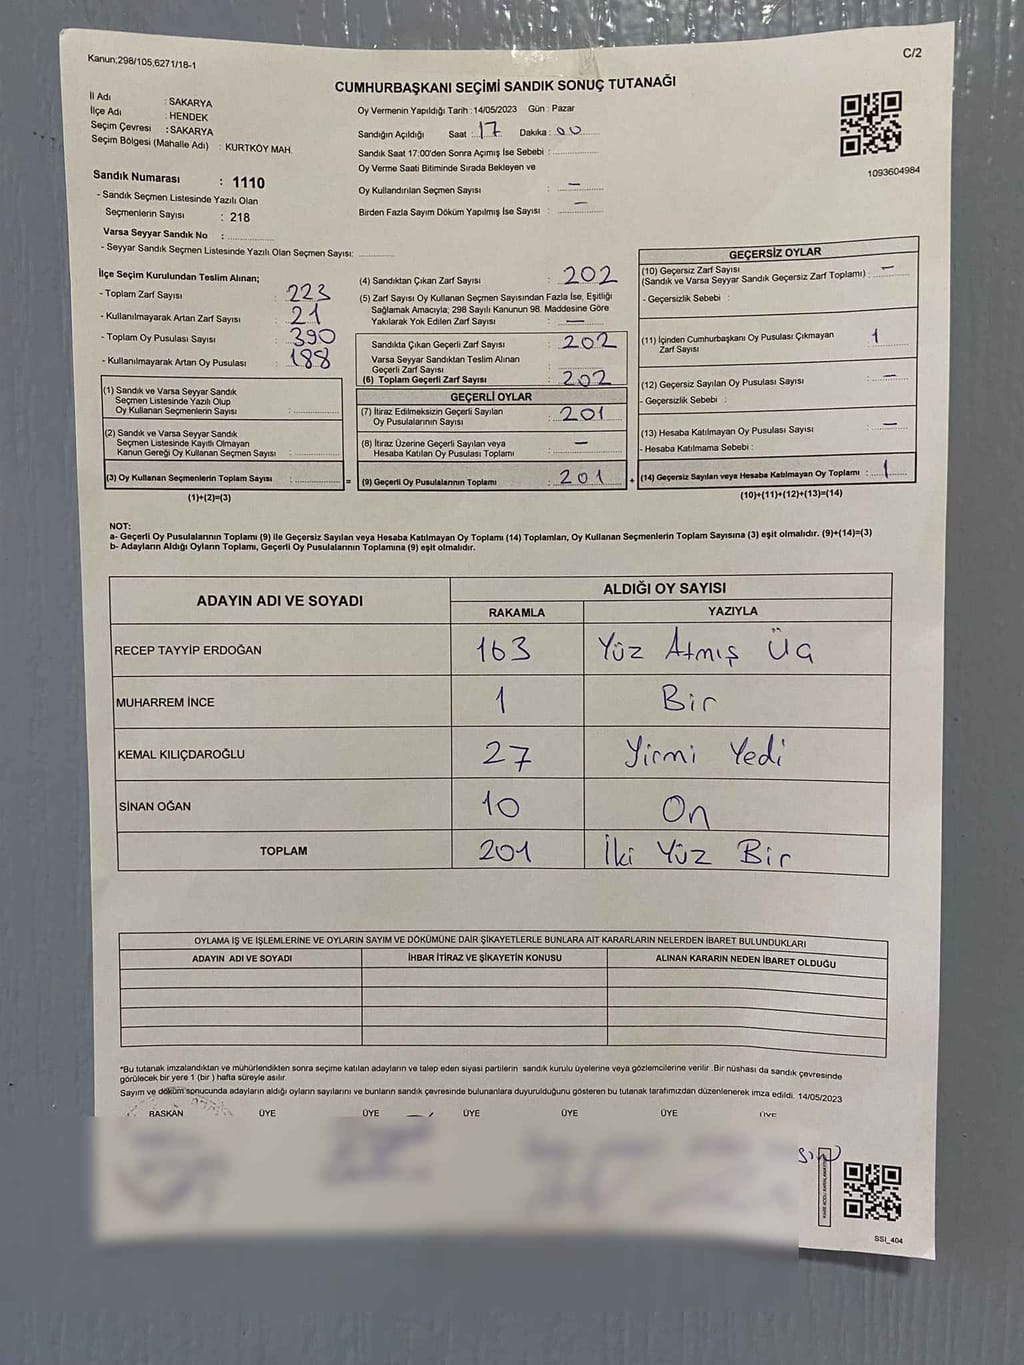 Kanun;298/105,6271/18-1
C/2
CUMHURBAŞKANI SEÇİMİ SANDIK SONUÇ TUTANAĞI
İl Adı : SAKARYA
İlçe Adı : HENDEK
Seçim Çevresi : SAKARYA
Seçim Bölgesi (Mahalle Adı) : KURTKÖY MAH.
Sandık Numarası : 1110
- Sandık Seçmen Listesinde Yazılı Olan
Seçmenlerin Sayısı : 218
Varsa Seyyar Sandık No :
- Seyyar Sandık Seçmen Listesinde Yazılı Olan Seçmen Sayısı:
Oy Vermenin Yapıldığı Tarih : 14/05/2023 Gün : Pazar
Sandığın Açıldığı Saat : 17 Dakika : 00
Sandık Saat 17:00'den Sonra Açımış İse Sebebi :
Oy Verme Saati Bitiminde Sırada Bekleyen ve
Oy Kullandırılan Seçmen Sayısı : —
Birden Fazla Sayım Döküm Yapılmış İse Sayısı : —
1093604984
İlçe Seçim Kurulundan Teslim Alınan;
- Toplam Zarf Sayısı : 223
- Kullanılmayarak Artan Zarf Sayısı : 21
- Toplam Oy Pusulası Sayısı : 390
- Kullanılmayarak Artan Oy Pusulası : 188
(1) Sandık ve Varsa Seyyar Sandık
Seçmen Listesinde Yazılı Olup
Oy Kullanan Seçmenlerin Sayısı :
(2) Sandık ve Varsa Seyyar Sandık
Seçmen Listesinde Kayıtlı Olmayan
Kanun Gereği Oy Kullanan Seçmen Sayısı :
(3) Oy Kullanan Seçmenlerin Toplam Sayısı : =
(1)+(2)=(3)
(4) Sandıktan Çıkan Zarf Sayısı : 202
(5) Zarf Sayısı Oy Kullanan Seçmen Sayısından Fazla İse, Eşitliği
Sağlamak Amacıyla; 298 Sayılı Kanunun 98. Maddesine Göre
Yakılarak Yok Edilen Zarf Sayısı : —
Sandıkta Çıkan Geçerli Zarf Sayısı : 202
Varsa Seyyar Sandıktan Teslim Alınan
Geçerli Zarf Sayısı :
(6) Toplam Geçerli Zarf Sayısı : 202
GEÇERLİ OYLAR
(7) İtiraz Edilmeksizin Geçerli Sayılan
Oy Pusulalarının Sayısı : 201
(8) İtiraz Üzerine Geçerli Sayılan veya
Hesaba Katılan Oy Pusulası Toplamı : —
(9) Geçerli Oy Pusulalarının Toplamı : 201 +
GEÇERSİZ OYLAR
(10) Geçersiz Zarf Sayısı
(Sandık ve Varsa Seyyar Sandık Geçersiz Zarf Toplamı) : —
- Geçersizlik Sebebi :
(11) İçinden Cumhurbaşkanı Oy Pusulası Çıkmayan
Zarf Sayısı : 1
(12) Geçersiz Sayılan Oy Pusulası Sayısı : —
- Geçersizlik Sebebi :
(13) Hesaba Katılmayan Oy Pusulası Sayısı : —
- Hesaba Katılmama Sebebi :
(14) Geçersiz Sayılan veya Hesaba Katılmayan Oy Toplamı : 1
(10)+(11)+(12)+(13)=(14)
NOT:
a- Geçerli Oy Pusulalarının Toplamı (9) ile Geçersiz Sayılan veya Hesaba Katılmayan Oy Toplamı (14) Toplamları, Oy Kullanan Seçmenlerin Toplam Sayısına (3) eşit olmalıdır. (9)+(14)=(3)
b- Adayların Aldığı Oyların Toplamı, Geçerli Oy Pusulalarının Toplamına (9) eşit olmalıdır.
ADAYIN ADI VE SOYADI
ALDIĞI OY SAYISI
RAKAMLA YAZIYLA
RECEP TAYYİP ERDOĞAN 163 Yüz Atmış Üç
MUHARREM İNCE 1 Bir
KEMAL KILIÇDAROĞLU 27 Yirmi Yedi
SİNAN OĞAN 10 On
TOPLAM 201 İki Yüz Bir
OYLAMA İŞ VE İŞLEMLERİNE VE OYLARIN SAYIM VE DÖKÜMÜNE DAİR ŞİKAYETLERLE BUNLARA AİT KARARLARIN NELERDEN İBARET BULUNDUKLARI
ADAYIN ADI VE SOYADI İHBAR İTİRAZ VE ŞİKAYETİN KONUSU ALINAN KARARIN NEDEN İBARET OLDUĞU
*Bu tutanak imzalandıktan ve mühürlendikten sonra seçime katılan adayların ve talep eden siyasi partilerin sandık kurulu üyelerine veya gözlemcilerine verilir. Bir nüshası da sandık çevresinde
görülecek bir yere 1 (bir ) hafta süreyle asılır.
Sayım ve döküm sonucunda adayların aldığı oyların sayılarını ve bunların sandık çevresinde bulunanlara duyurulduğunu gösteren bu tutanak tarafımızdan düzenlenerek imza edildi. 14/05/2023
BAŞKAN ÜYE ÜYE ÜYE ÜYE ÜYE ÜYE
SSI_404